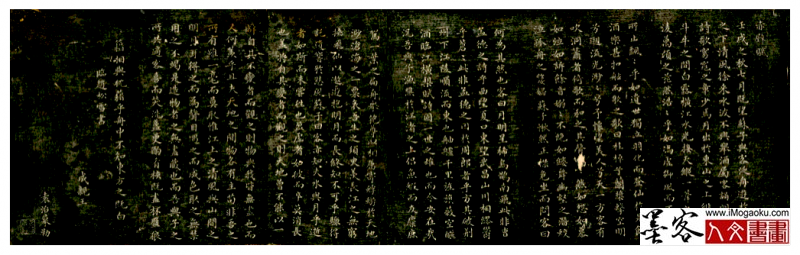 赤壁賦
壬戌之秋七月既望蘇子與客泛舟遊於
之下清風徐來水波不興舉酒屬客誦明
詩歌窈窕之章少焉月出於東山之上徘
斗牛之間白露橫江水光接天縱一葦
凌萬頃之茫然浩浩乎如馮虛御風而
所止飄飄乎如遺世獨立羽化而登仙
酒樂甚扣舷而歌之歌曰桂棹兮蘭槳擊空明
兮泝流光渺渺兮予懷望美人兮天一方客有
吹洞簫者倚歌而和之其聲嗚嗚然如怨如慕
如泣如訴餘音嫋嫋不絕如縷舞幽壑之潛蛟
泣孤舟之嫠婦蘇子愀然正襟危坐而問客曰
何為其然也客曰月明星稀烏鵲南飛此非曹
孟德之詩乎西望夏口東望武昌山川相繆鬱
乎蒼蒼此非孟德之困於周郎者乎方其破荊
州下江陵順流而東也舳艫千里旌旗蔽空釃
酒臨江橫槊賦詩固一世之雄也而今安在哉
況吾與子漁樵於江渚之上侶魚蝦而友麋鹿
駕一葉之扁舟舉匏樽以相屬寄蜉蝣於天地
渺滄海之一粟哀吾生之須臾羨長江之無窮
挾飛仙以遨遊抱明月而長終知不可乎驟得
託遺響於悲風蘇子曰客亦知夫水與月乎逝
者如斯而未嘗往也盈虛者如彼而卒莫消長
也蓋將自其變者而觀之則天地曾不能以一
瞬自其不變者而觀之則物與我皆無盡也而
又何羨乎且夫天地之間物各有主苟非吾之
所有雖一毫而莫取惟江上之清風與山間之
明月耳得之而為聲目遇之而成色取之無禁
用之不竭是造物者之無盡藏也而吾與子之
所共適客喜而笑洗盞更酌肴核既盡杯盤狼
藉相與枕藉乎舟中不知東方之既白
臨趙松雪書
成親王
摹勒
www.iMogaoku.com
墨客
人文書畫